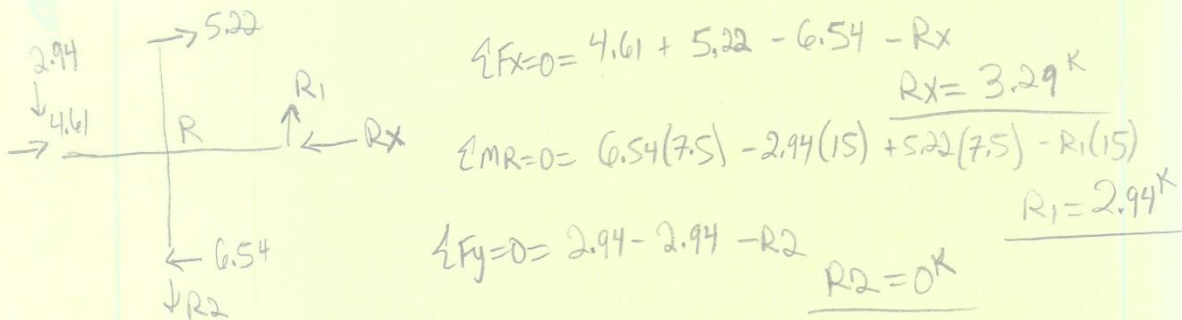 5.22
2.94
4.61
R
R1
Rx
6.54
R2
ΣFx=0= 4.61 + 5.22 - 6.54 - Rx
Rx= 3.29ᴷ
ΣMR=0= 6.54(7.5) - 2.94(15) + 5.22(7.5) - R1(15)
R1= 2.94ᴷ
ΣFy=0= 2.94 - 2.94 - R2
R2 = 0ᴷ